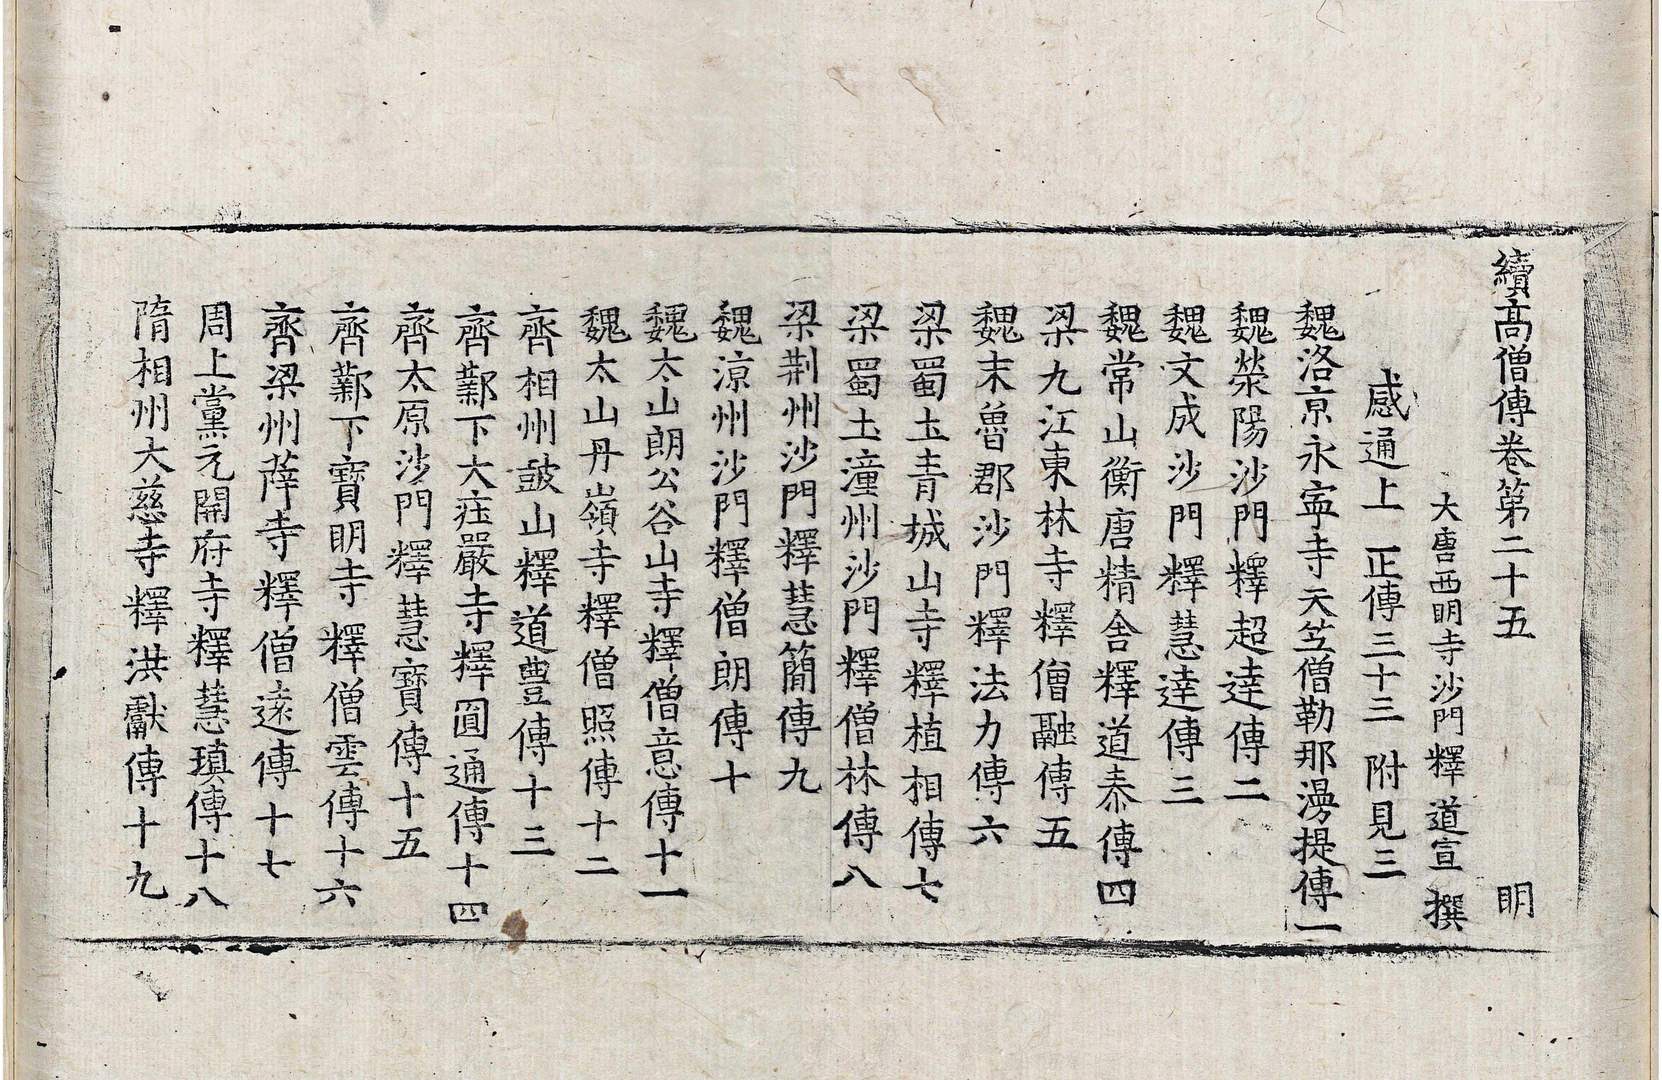 續高僧傳卷第二十五 明
大唐西明寺沙門釋道宣撰
感通上 正傳三十三 附見三
魏洛京永寧寺天竺僧勒那漫提傳一
魏滎陽沙門釋超達傳二
魏文成沙門釋慧達傳三
魏常山衡唐精舍釋道泰傳四
梁九江東林寺釋僧融傳五
魏末魯郡沙門釋法力傳六
梁蜀土青城山寺釋植相傳七
梁蜀土潼州沙門釋僧林傳八
梁荆州沙門釋慧簡傳九
魏涼州沙門釋僧朗傳十
魏太山朗公谷山寺釋僧意傳十一
魏太山丹嶺寺釋僧照傳十二
齊相州鼓山釋道豊傳十三
齊鄴下大莊嚴寺釋圓通傳十四
齊太原沙門釋慧寶傳十五
齊鄴下寶明寺釋僧雲傳十六
齊梁州薛寺釋僧遠傳十七
周上黨元開府寺釋慧瑱傳十八
隋相州大慈寺釋洪獻傳十九